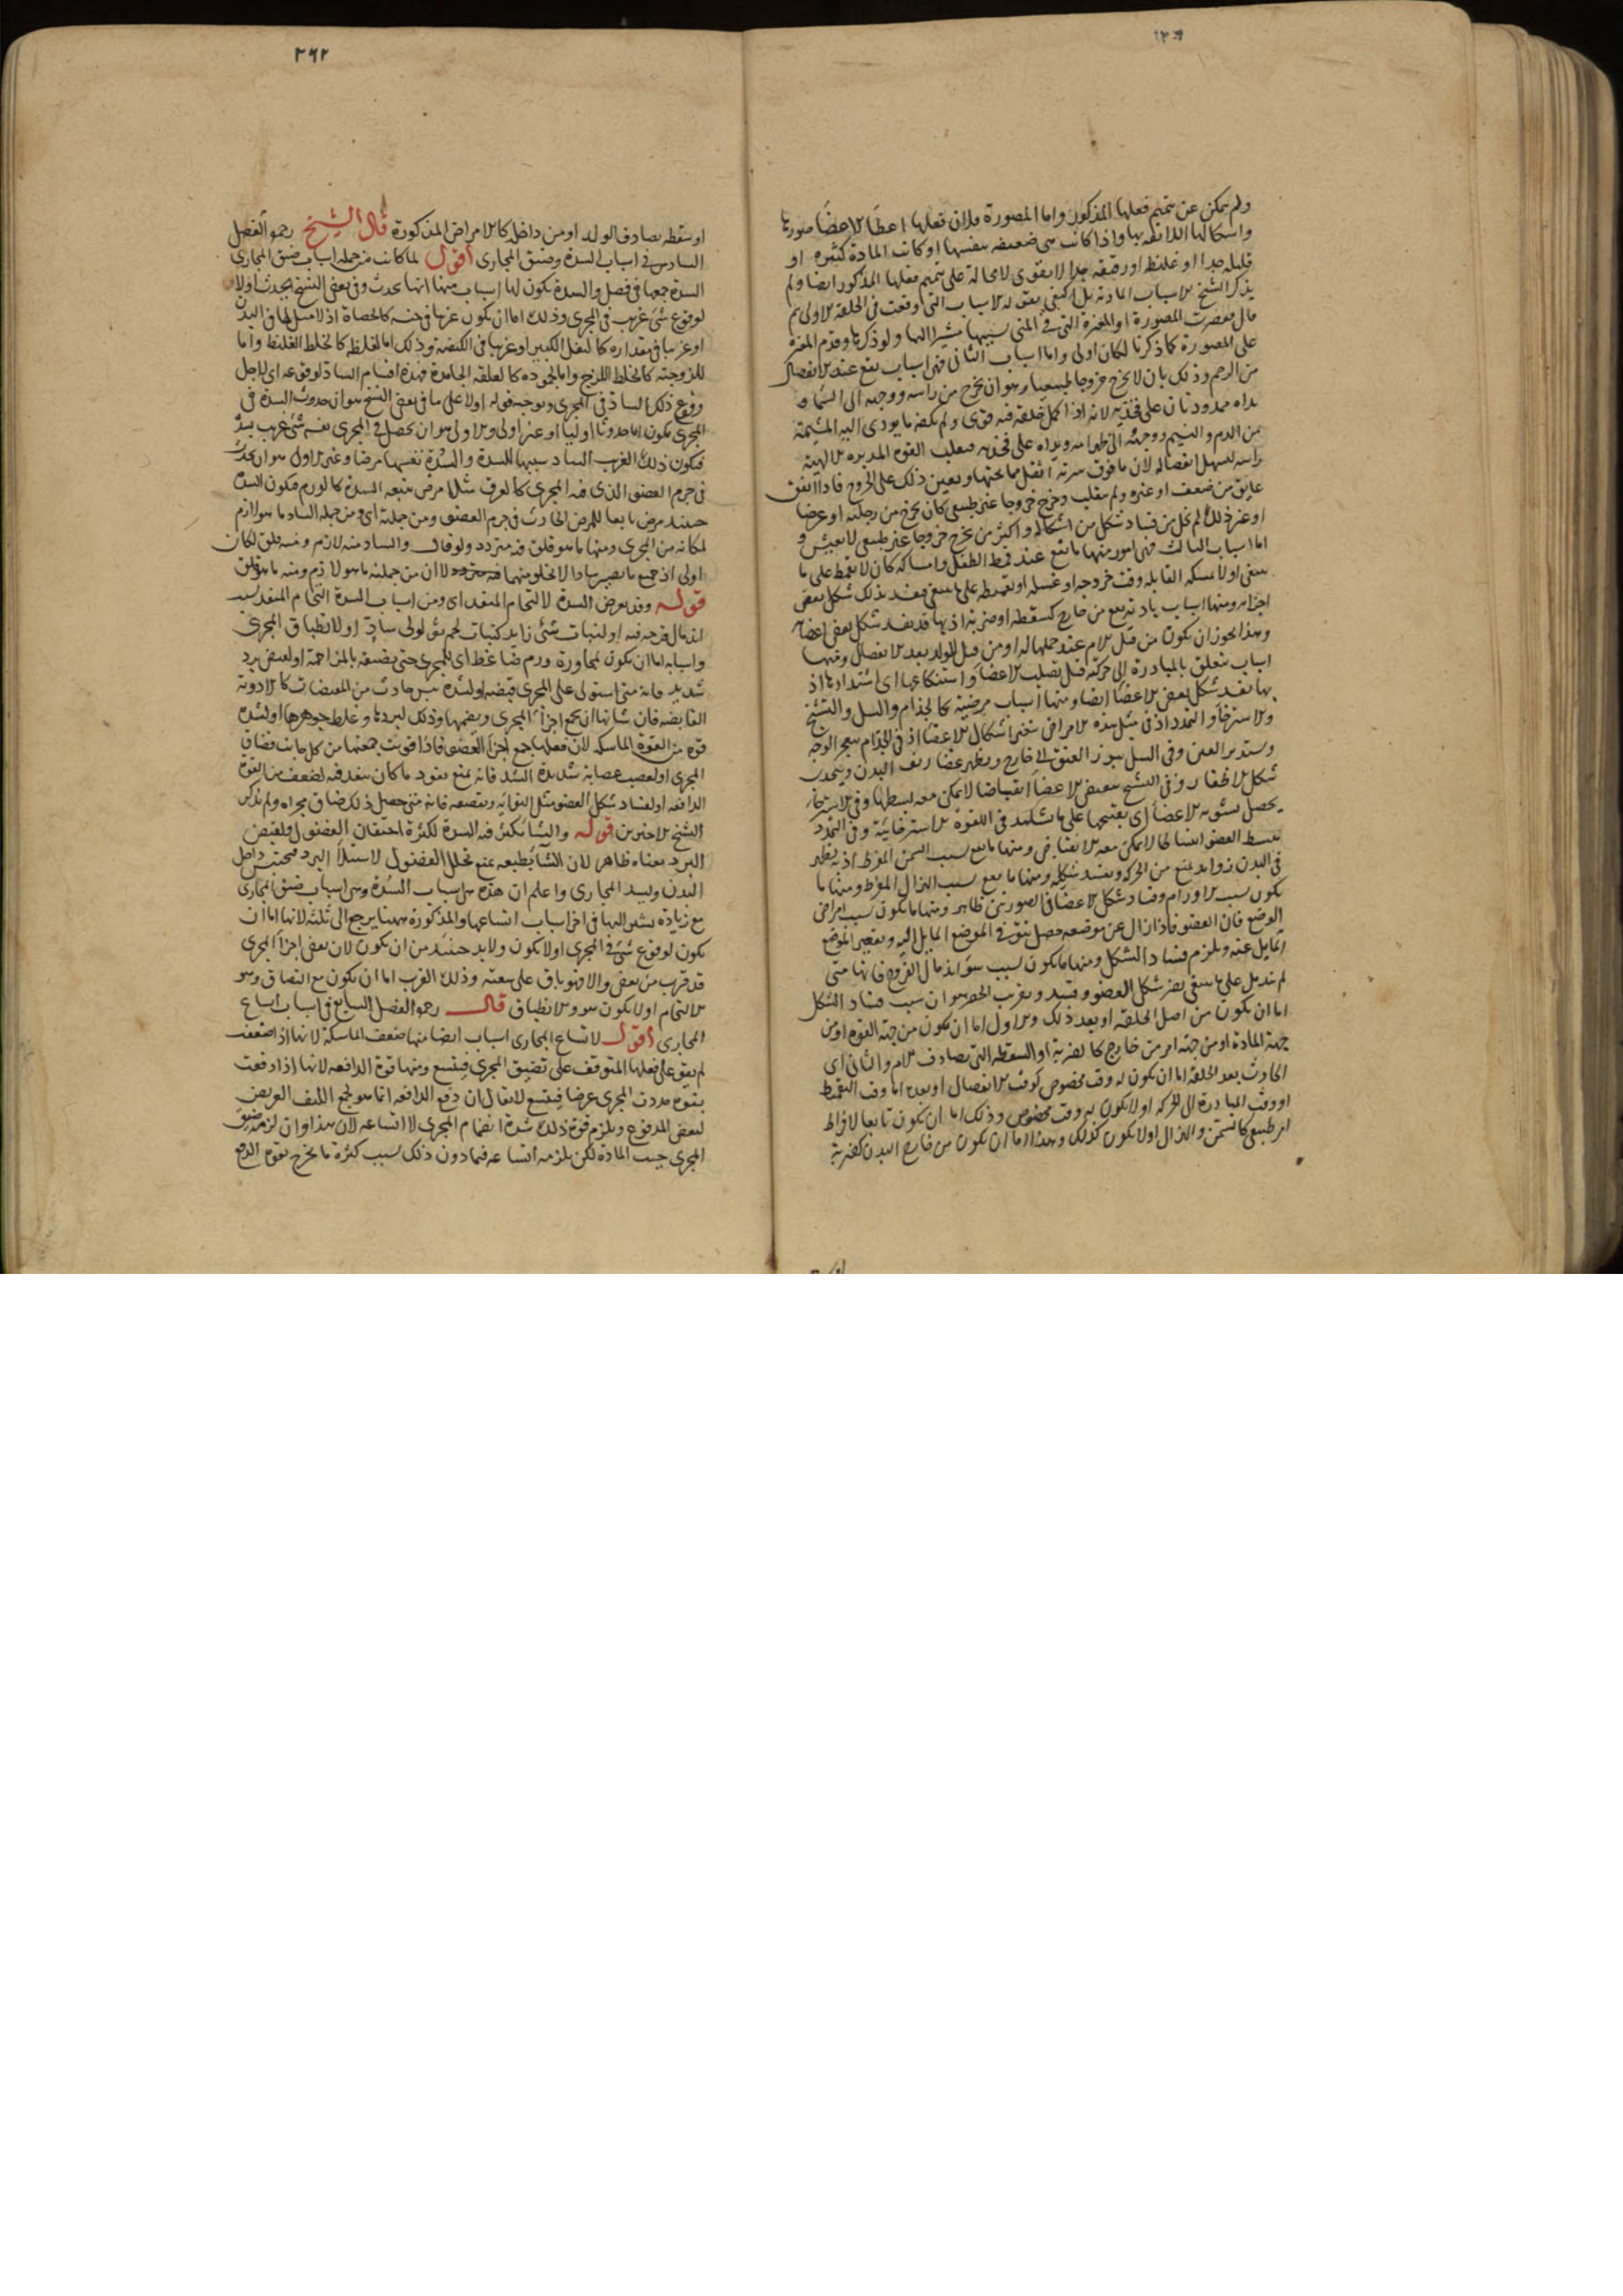 ولم يتمكن عن تتميم فعلها المذكور واما المصورة فلان فعلها اعطا الاعضا صورها
واشكالها اللايقه بها واذا كانت هى ضعيفه بنفسها او كانت المادة كثيره او
قليله جدا او غليظه او رقيقه جدا لا يقوى لا محالة على تتميم فعلها المذكور ايضا ولم
يذكر الشيخ الاسباب المادية بل اكتفى بقوله الاسباب التى وقعت فى الخلقة الاولى
المصورة او المغيرة التى فى المنى بسببها مشيرا اليها ولو ذكرها وقدم المغيرة
على المصورة كما ذكرنا لكان اولى واما اسباب الثانى فهى اسباب تقع عند الانفصال
من الرحم وذلك بان لا يخرج خروجا طبيعيا وهو ان يخرج من راسه ووجهه الى السماء و
يداه ممدودتان على فخذيه لانه اذا كمل خلقته فيه قوى ولم يكفه ما يودى اليه المشيمة
من الدم والنسيم ووجهه الى ظهر امه ويداه على فخذيه فيقلب القوة المدبره الالهية
راسه ليسهل انفصاله لان ما فوق سرته اثقل مما تحتها ويعين ذلك على الخروج فاذا اتفق
عايق من ضعف او غيره ولم ينقلب وخرج خروجا غير طبيعى كان يخرج من رجليه او عرضا
او غير ذلك لم يخل من فساد شكل من اشكاله واكثر من يخرج خروجا غير طبيعى لا يعيش و
اما اسباب الثالث فهى امور منها ما يقع عند قمط الطفل وامساكه كان لا يقمط على ما
ينبغى او لا يمسكه القابله وقت خروجه او غسله او تقميطه على ما ينبغى فيفسد بذلك شكل بعض
اجزائه ومنها اسباب بادية تقع من خارج كسقطه او ضربة اذ بها قد يفسد شكل بعض اعضائه
وهذا يجوز ان يكون من قبل الام عند حملها له او من قبل الولد بعد الانفصال ومنها
اسباب يتعلق بالمبادرة الى حركة قبل تصلب الاعضا واستنكافها اى اشتدادها اذ
بها يفسد شكل بعض الاعضا ايضا ومنها اسباب مرضية كالجذام والسل والتشنج
والاسترخاء والتمدد اذ فى مثل هذه الامراض يتغير اشكال الاعضا اذ فى الجذام يتعجر الوجه
وستدير العين وفى السل يبرز العنق الى خارج ويظهر غضاريف البدن ويتحدب
شكل الاظفار وفى التشنج ينقبض الاعضا انقباضا لا يمكن معه بسطها وفى الاسترخاء
يحصل تشويه الاعضا اى يقبحها على ما تشاهد فى اللقوة الاسترخائية وفى التمدد
ينبسط العضو انبساطا لا يمكن معه الانقباض ومنها ما يقع بسبب السمن المفرط اذ به يظهر
فى البدن زوايد يمنع من الحركة ويفسد شكله ومنها ما يقع بسبب الهزال المفرط ومنها ما
يكون بسبب الاورام وفساد شكل الاعضا فى الصورتين ظاهر ومنها ما يكون بسبب امراض
الوضع فان العضو فاذا زال عن موضعه حصل نتو فى الموضع المايل اليه وتقعير الموضع
المايل عنه ويلزم فساد الشكل ومنها ما يكون بسبب سوء اندمال القروح فانها متى
لم تندمل على ما ينبغى يضر شكل العضو ويفسد ويقرب الحصر هو ان سبب فساد الشكل
اما ان يكون من اصل الخلقة او بعد ذلك والاول اما ان يكون من جهة القوة او من
جهة المادة او من جهة امر من خارج كالضربة او السقطه التى تصادف الام والثانى اى
الحادث بعد الخلقة اما ان يكون له وقت مخصوص كوقت الانفصال او بعده اما وقت التقميط
او وقت المبادرة الى الحركه او لا يكون له وقت مخصوص وذلك اما ان يكون تابعا لافراط
امر طبيعى كالتسمن والهزال او لا يكون كذلك وهذا اما ان يكون من خارج البدن كضربة
٢٦٢
او سقطه تصادف الولد او من داخله كالامراض المذكورة قال الشيخ رحمه الله الفصل
السادس فى اسباب السدة وضيق المجارى اقول لما كانت من جمله اسباب ضيق المجارى
السدة جمعها فى فصل والسدة يكون لها اسباب منها انها تحدث وفى بعض النسخ يحدث اولا
لوقوع شئ غريب فى المجرى وذلك اما ان يكون غريبا فى جنسه كالحصاة اذ لا مثل لها فى البدن
او غريبا فى مقداره كالثفل الكبير او غريبا فى الكيفية وذلك اما لغلظه كالخلط الغليظ واما
للزوجته كالخلط اللزج واما لجموده كالعلقه الجامدة فهذه اقسام الساد لوقوعه اى لاجل
وقوع ذلك الساد فى المجرى وتوجيه قوله اولا على ما فى بعض النسخ هو ان حدوث السدة فى
المجرى يكون اما حدوثا اوليا او غير اولى والاولى هو ان يحصل فى المجرى نفسه شئ غريب يسد
فيكون ذلك الغريب الساد سببا للسدة والسدة نفسها مرضا وغير الاول هو ان يحدث
فى جرم العضو الذى فيه المجرى كالعرق مثلا مرض يتبعه السدة كالورم فيكون السدة
حينئذ مرض تابعا للمرض الحادث فى جرم العضو ومن جملته اى ومن جمله الساد ما هو لازم
لمكانه من المجرى ومنها ما هو قلق فيه متردد ولو قال والساد منه لازم ومنه قلق لكان
اولى اذ جميع ما يصير سادا لا يخلو منهما لا ان من جملته ما هو لازم ومنه ما هو قلق
قوله وقد يعرض السدة لالتحام المنفذ اى ومن اسباب السدة التحام المنفذ بسبب
اندمال قرحه فيه او لنبات شئ زايد كنبات لحم ثؤلولى ساد او لانطباق المجرى
واسبابه اما ان يكون لمجاورة ورم ضاغط اى للمجرى حتى يضيقه بالمزاحمة او لقبض برد
شديد فانه متى استولى على المجرى قبضه او لشدة يبس حادث من المقبضات كالادوية
القابضه فان شانها ان يجمع اجزاء المجرى ويضمها وذلك لبردها وغلظ جوهرها او لشدة
قوة من القوة الماسكه لان فعلها جمع اجزاء العضو فاذا قويت جمعتها من كل جانب فضاق
المجرى او لعصب عصابة شديدة الشد فانه يمنع نفوذ ما كان ينفذ فيه لضعف من القوة
الدافعه او لفساد شكل العضو مثل التوائه وتقصعه فانه متى حصل ذلك ضاق مجراه ولم يذكر
الشيخ الاخيرين قوله والشتا يكثر فيه السدة لكثرة احتقان الفضول ولقبض
البرد معناه ظاهر لان الشتا بطبعه يمنع تحلل الفضول لاستيلا البرد فيحتبس داخل
البدن وليسد المجارى واعلم ان هذه هى اسباب السدة وهى اسباب ضيق المجارى
مع زيادة يشير اليها فى اخر اسباب اتساعها والمذكورة ههنا يرجع الى ثلثة لانها اما ان
يكون لوقوع شئ فى المجرى او لا يكون ولا بد حينئذ من ان يكون لان بعض اجزا المجرى
قد قرب من بعض والا فهو باق على سعته وذلك القرب اما ان يكون مع التصاق وهو
الالتحام او لا يكون هو والانطباق قال رحمه الله الفصل السابع فى اسباب اتساع
المجارى اقول لاتساع المجارى اسباب ايضا منها ضعف الماسكه لانها اذا ضعفت
لم يقو على فعلها المتوقف على تضييق المجرى فيتسع ومنها قوة الدافعه لانها اذا دفعت
بقوة مددت المجرى عرضا فيتسع لا يقال ان دفع الدافعه انما هو لجمع الليف العريض
لبعض المدفوع ويلزم قوة ذلك شدة انضمام المجرى لا اتساعه لان هذا وان لزمه ضيق
المجرى حيث المادة لكن يلزمه اتساعه فيما دون ذلك بسبب كثرة ما يخرج بقوة الدفع